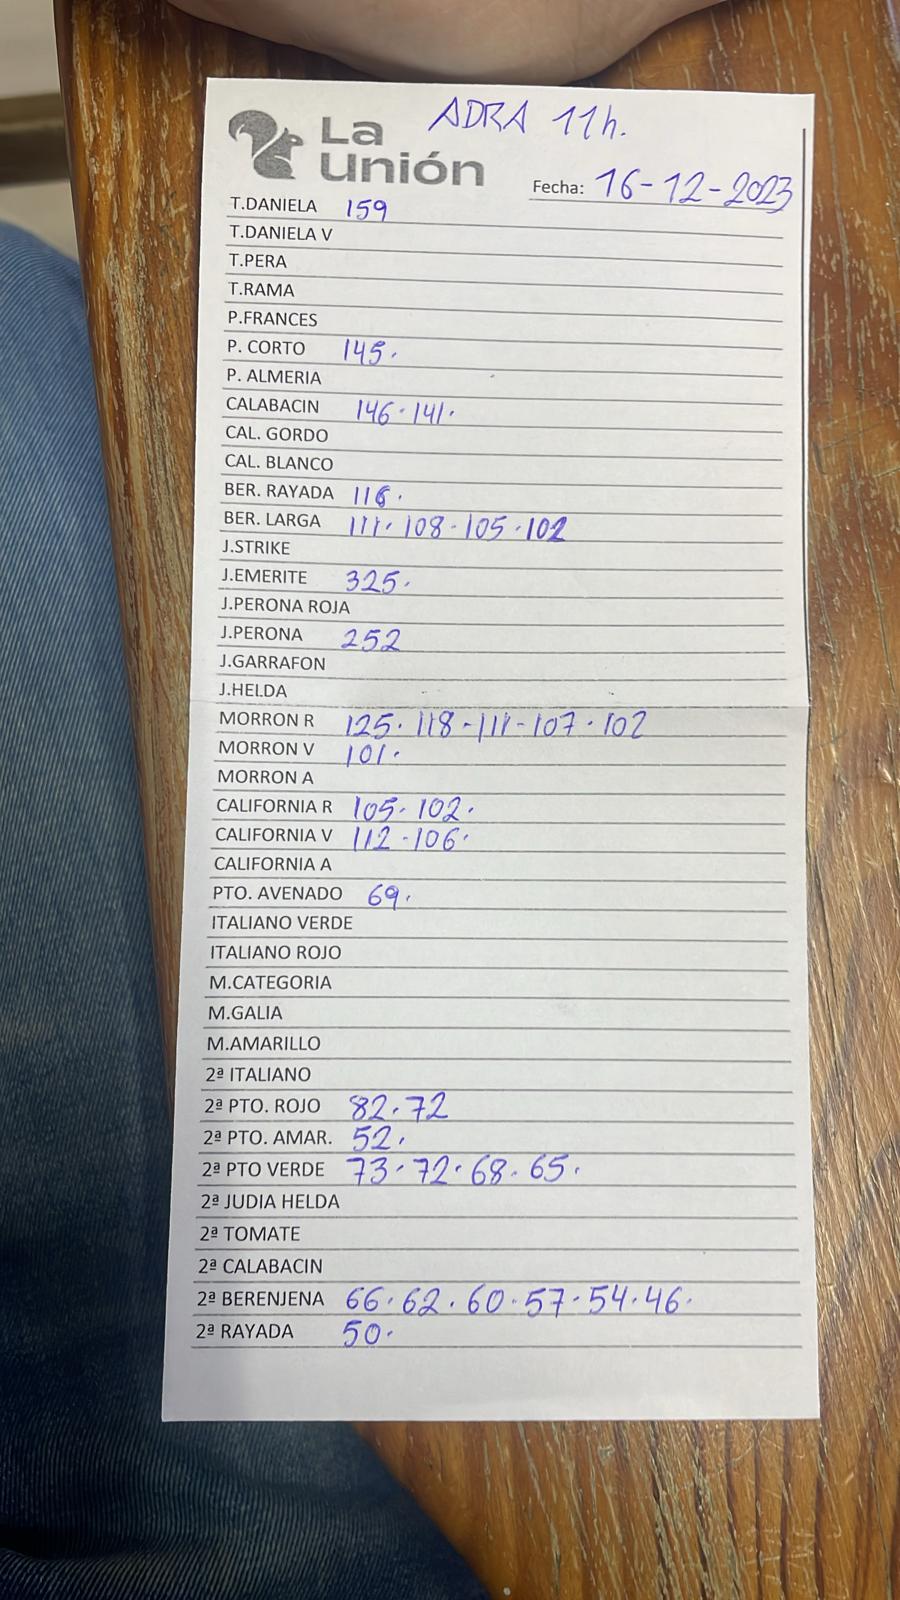 ADRA 11h.
La
Unión
Fecha: 16-12-2023
T.DANIELA 159
T.DANIELA V
T.PERA
T.RAMA
P.FRANCES
P. CORTO 145.
P. ALMERIA
CALABACIN 146 · 141.
CAL. GORDO
CAL. BLANCO
BER. RAYADA 116.
BER. LARGA 111 · 108 - 105 · 102
J.STRIKE
J.EMERITE 325.
J.PERONA ROJA
J.PERONA 252
J.GARRAFON
J.HELDA
MORRON R 125 · 118 - 111 - 107 · 102
MORRON V 101.
MORRON A
CALIFORNIA R 105 · 102.
CALIFORNIA V 112 - 106.
CALIFORNIA A
PTO. AVENADO 69.
ITALIANO VERDE
ITALIANO ROJO
M.CATEGORIA
M.GALIA
M.AMARILLO
2ª ITALIANO
2ª PTO. ROJO 82 · 72
2ª PTO. AMAR. 52.
2ª PTO VERDE 73 · 72 · 68 · 65.
2ª JUDIA HELDA
2ª TOMATE
2ª CALABACIN
2ª BERENJENA 66 · 62 · 60 · 57 · 54 · 46.
2ª RAYADA 50.